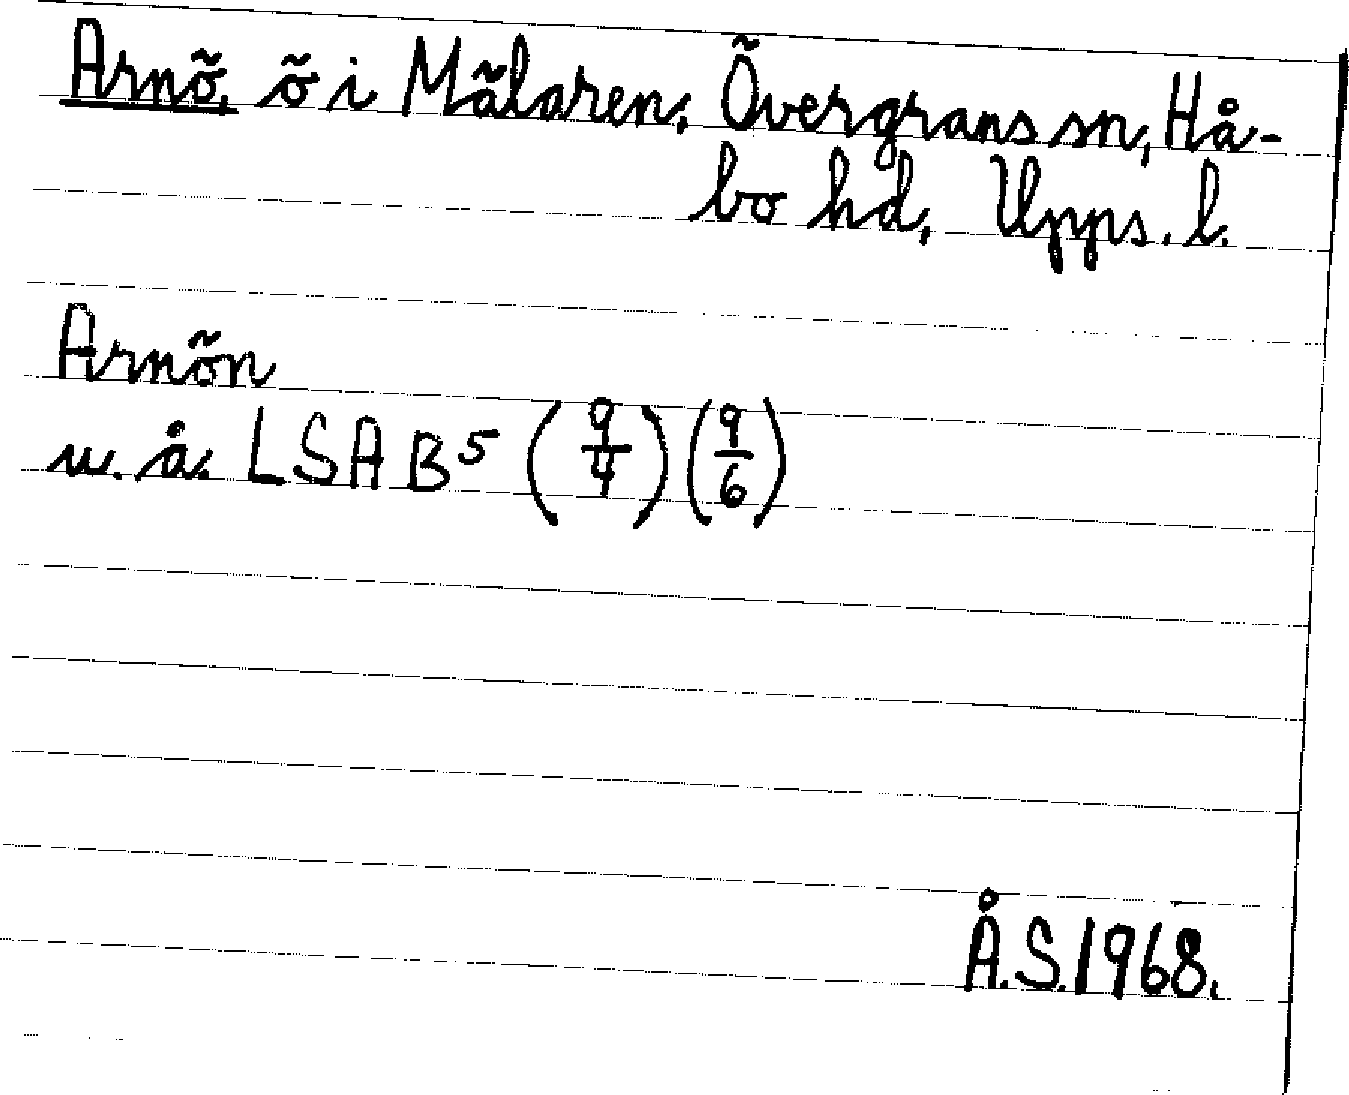 Arnö, ö i Mälaren, Övergrans sn, Hå-
bo hd, Upps. l.
Arnön
u. å. LSA B⁵ (9/4) (9/6)
Å.S. 1968.